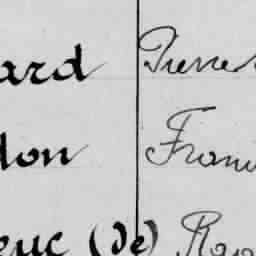 ard Pierre
don Fran
euc (de)